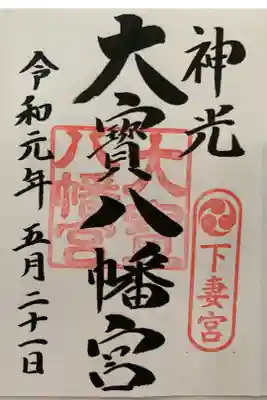 神光
大寳八幡宮
大宝八幡宮
下妻宮
令和元年五月二十一日